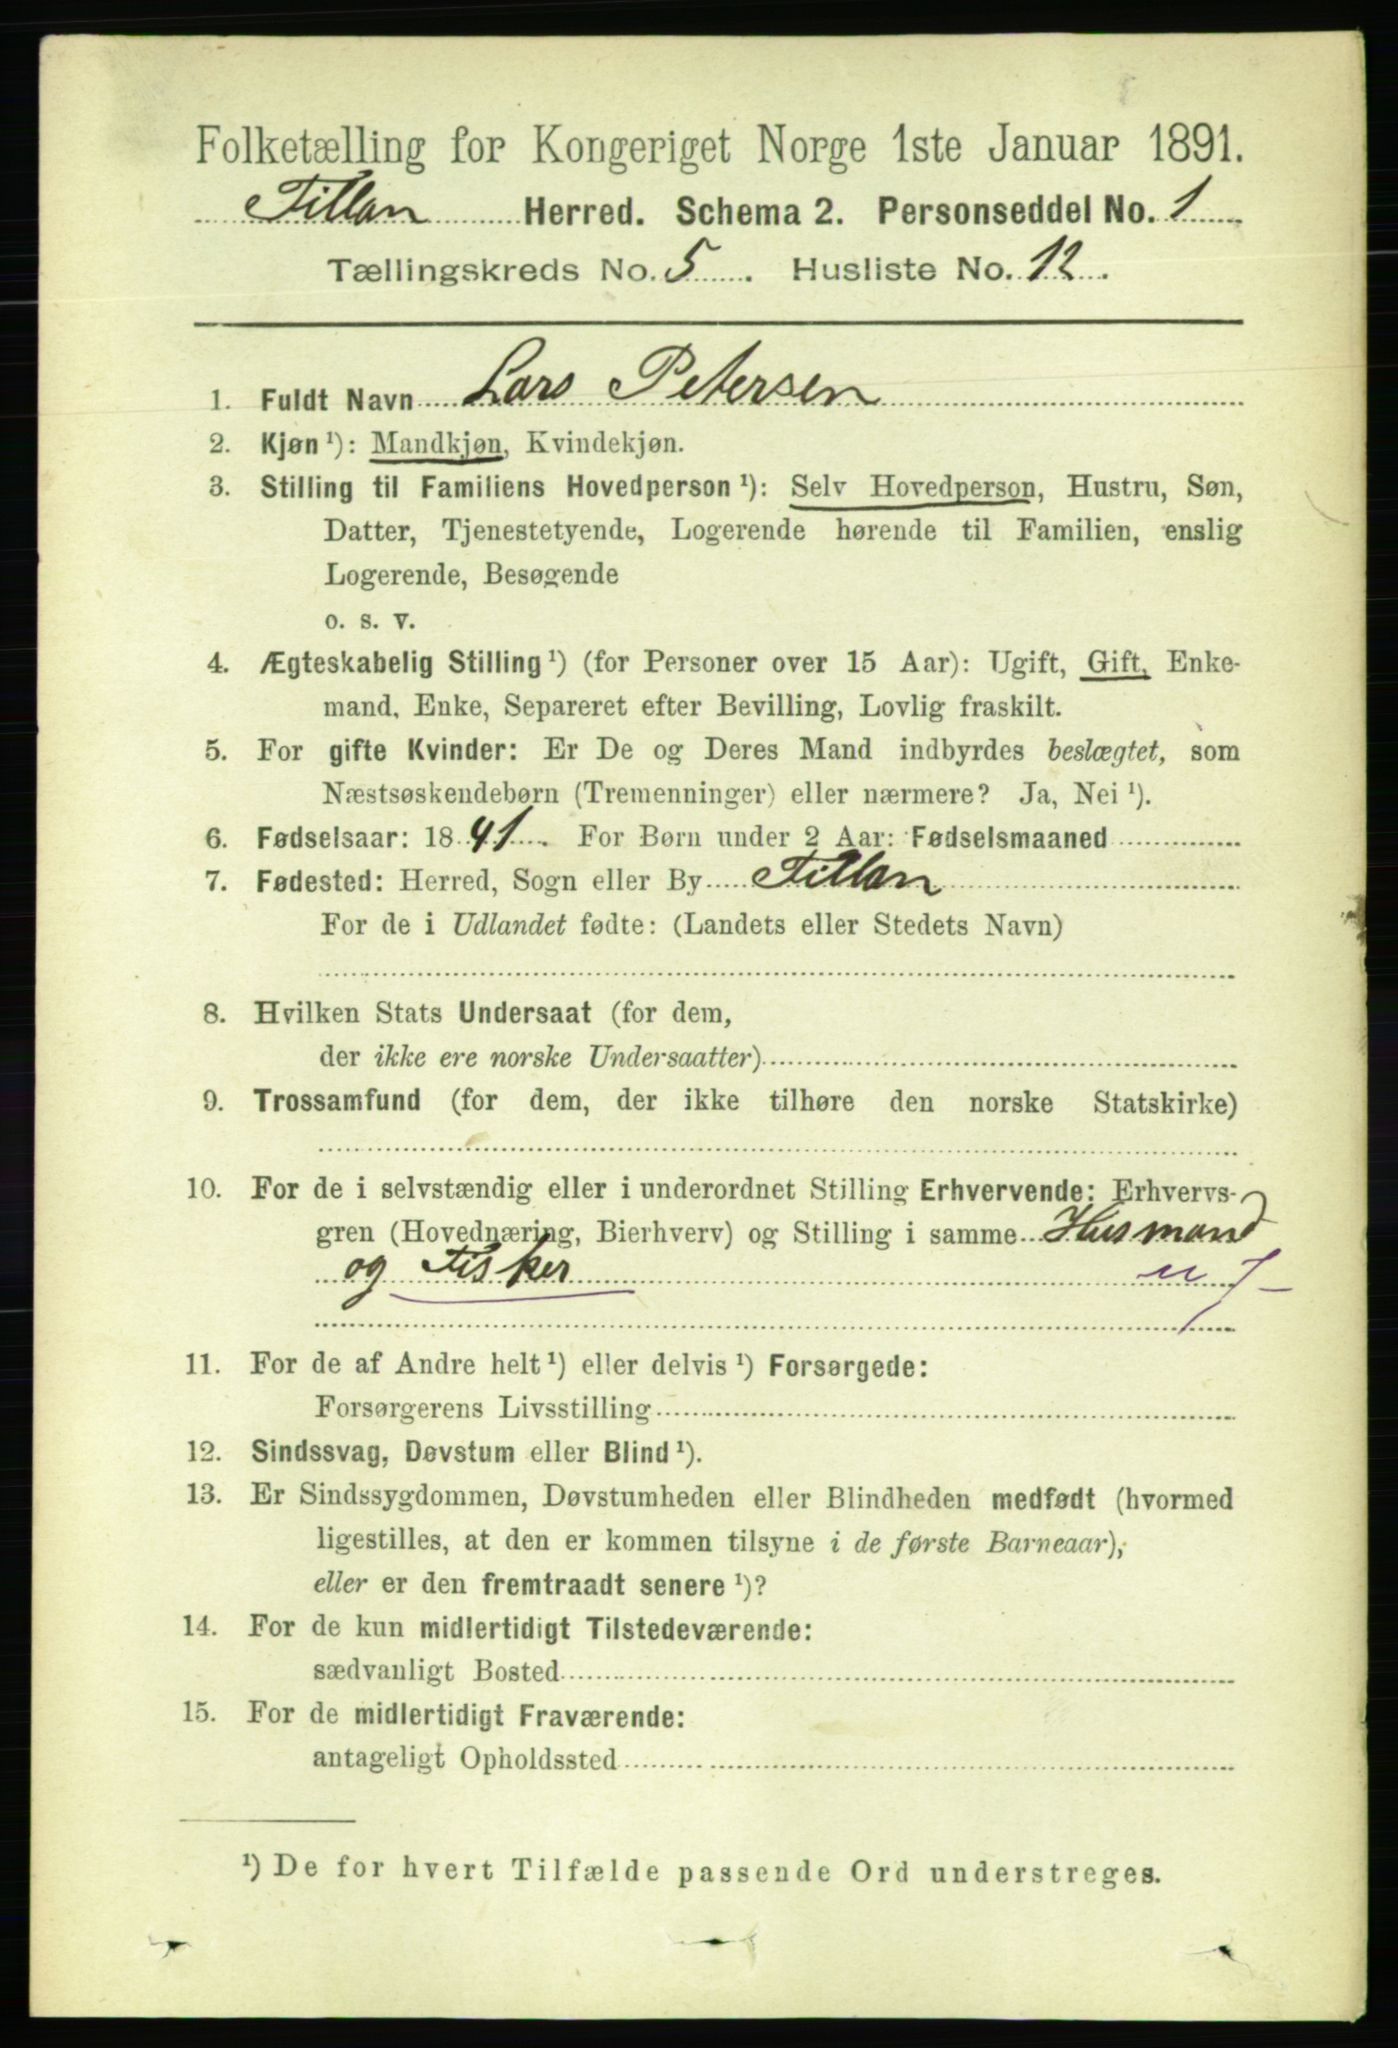 Folketælling for Kongeriget Norge 1ste Januar 1891.
Fillan Herred. Schema 2. Personseddel No. 1
Tællingskreds No. 5. Husliste No. 12.
1. Fuldt Navn Lars Petersen
2. Kjøn¹): Mandkjøn, Kvindekjøn.
3. Stilling til Familiens Hovedperson¹): Selv Hovedperson, Hustru, Søn,
Datter, Tjenestetyende, Logerende hørende til Familien, enslig
Logerende, Besøgende
o. s. v.
4. Ægteskabelig Stilling¹) (for Personer over 15 Aar): Ugift, Gift, Enke-
mand, Enke, Separeret efter Bevilling, Lovlig fraskilt.
5. For gifte Kvinder: Er De og Deres Mand indbyrdes beslægtet, som
Næstsøskendebørn (Tremenninger) eller nærmere? Ja, Nei¹).
6. Fødselsaar: 1841. For Børn under 2 Aar: Fødselsmaaned
7. Fødested: Herred, Sogn eller By Fillan
For de i Udlandet fødte: (Landets eller Stedets Navn)
8. Hvilken Stats Undersaat (for dem,
der ikke ere norske Undersaatter)
9. Trossamfund (for dem, der ikke tilhøre den norske Statskirke)
10. For de i selvstændig eller i underordnet Stilling Erhvervende: Erhvervs-
gren (Hovednæring, Bierhverv) og Stilling i samme Husmand
og Fisker
11. For de af Andre helt¹) eller delvis¹) Forsørgede:
Forsørgerens Livsstilling
12. Sindssvag, Døvstum eller Blind¹).
13. Er Sindssygdommen, Døvstumheden eller Blindheden medfødt (hvormed
ligestilles, at den er kommen tilsyne i de første Barneaar),
eller er den fremtraadt senere¹)?
14. For de kun midlertidigt Tilstedeværende:
sædvanligt Bosted
15. For de midlertidigt Fraværende:
antageligt Opholdssted
¹) De for hvert Tilfælde passende Ord understreges.